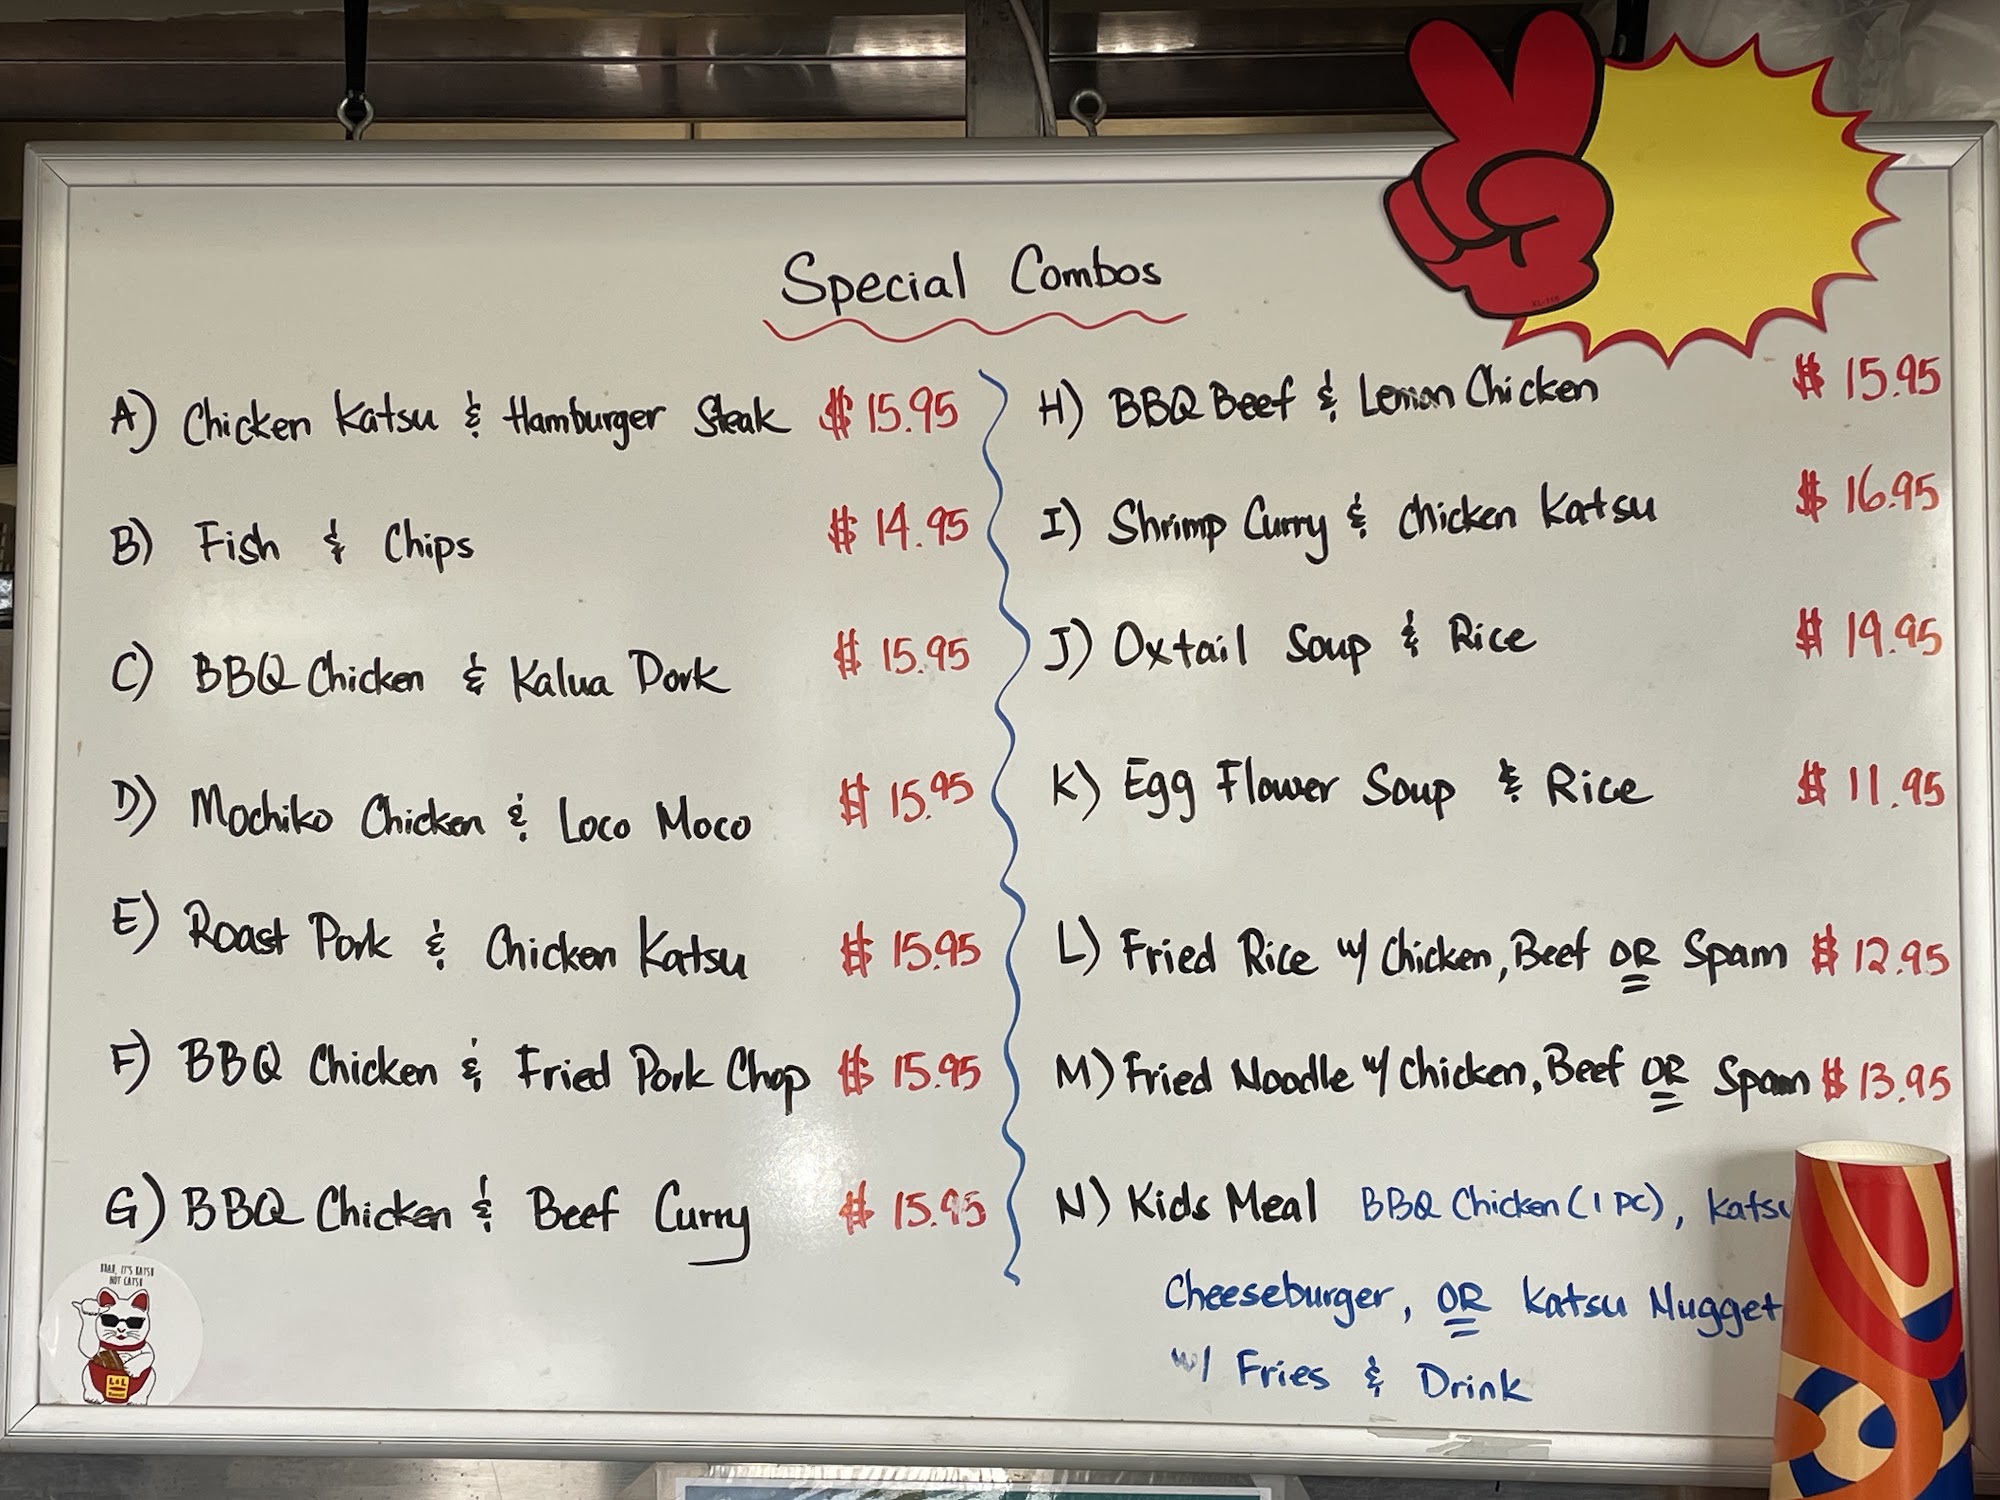 Special Combos
A) Chicken Katsu & Hamburger Steak $15.95
B) Fish & Chips $14.95
C) BBQ Chicken & Kalua Pork $15.95
D) Mochiko Chicken & Loco Moco $15.95
E) Roast Pork & Chicken Katsu $15.95
F) BBQ Chicken & Fried Pork Chop $15.95
G) BBQ Chicken & Beef Curry $15.95
H) BBQ Beef & Lemon Chicken $15.95
I) Shrimp Curry & Chicken Katsu $16.95
J) Oxtail Soup & Rice $19.95
K) Egg Flower Soup & Rice $11.95
L) Fried Rice w/ Chicken, Beef OR Spam $12.95
M) Fried Noodle w/ Chicken, Beef OR Spam $13.95
N) Kids Meal BBQ Chicken (1 PC), Kats
Cheeseburger, OR Katsu Nugget
w/ Fries & Drink
BRAH, IT'S KATSU
NOT CATSU
L&L